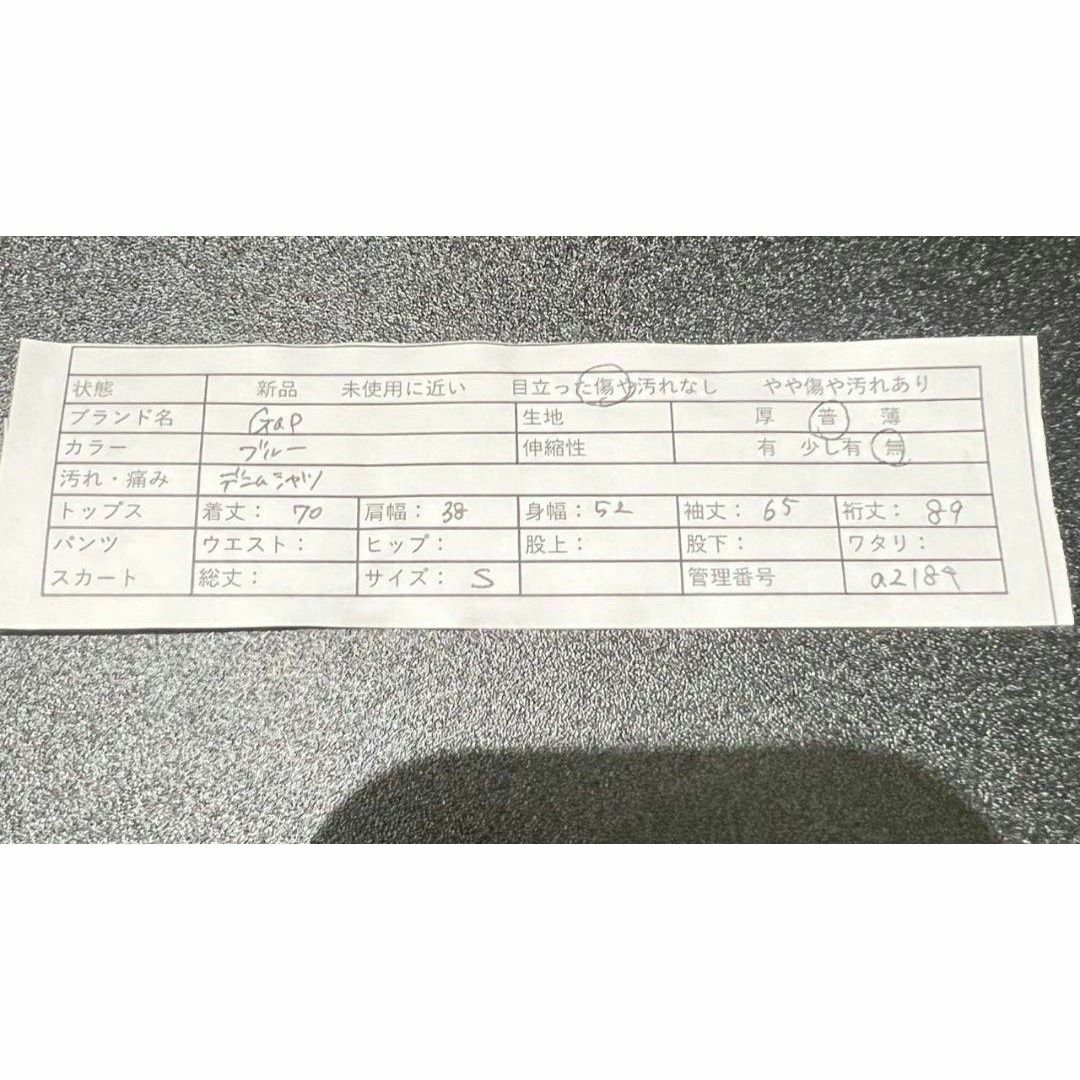 状態 新品 未使用に近い 目立った傷や汚れなし やや傷や汚れあり
ブランド名 Gap 生地 厚 普 薄
カラー ブルー 伸縮性 有 少し有 無
汚れ・痛み デニムシャツ
トップス 着丈： 70 肩幅： 38 身幅： 52 袖丈： 65 裄丈： 89
パンツ ウエスト： ヒップ： 股上： 股下： ワタリ：
スカート 総丈： サイズ： S 管理番号 a2189